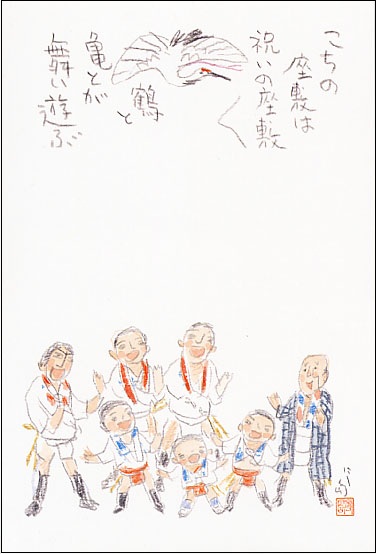 こちの
座敷は
祝いの座敷
〱
鶴と
亀とが
舞い遊ぶ